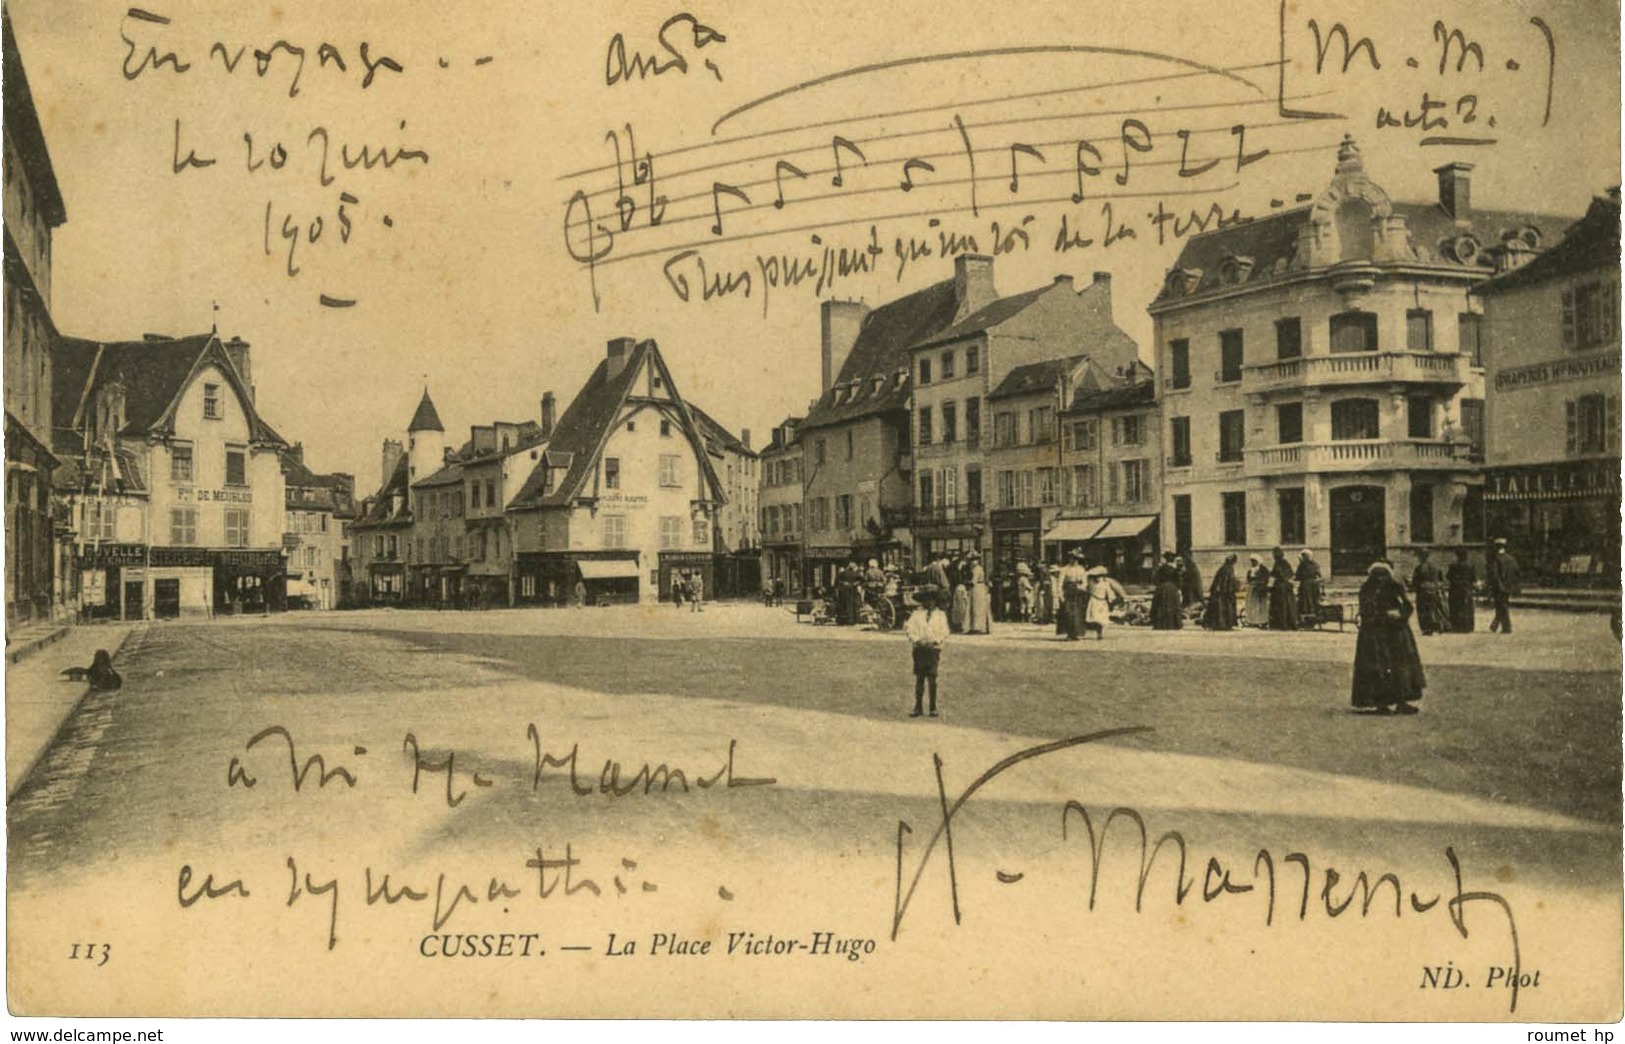 En voyage ..
le 20 Juin
1905.
And.te
(M. M.)
acte 2.
Plus puissant qu'un roi de la terre ...
Fque DE MEUBLES
NOUVELLE
SIEGES
TAILLEUR
à M. Mamet
en sympathie.
Massenet
113
CUSSET. — La Place Victor-Hugo
ND. Phot
www.delcampe.net
roumet hp